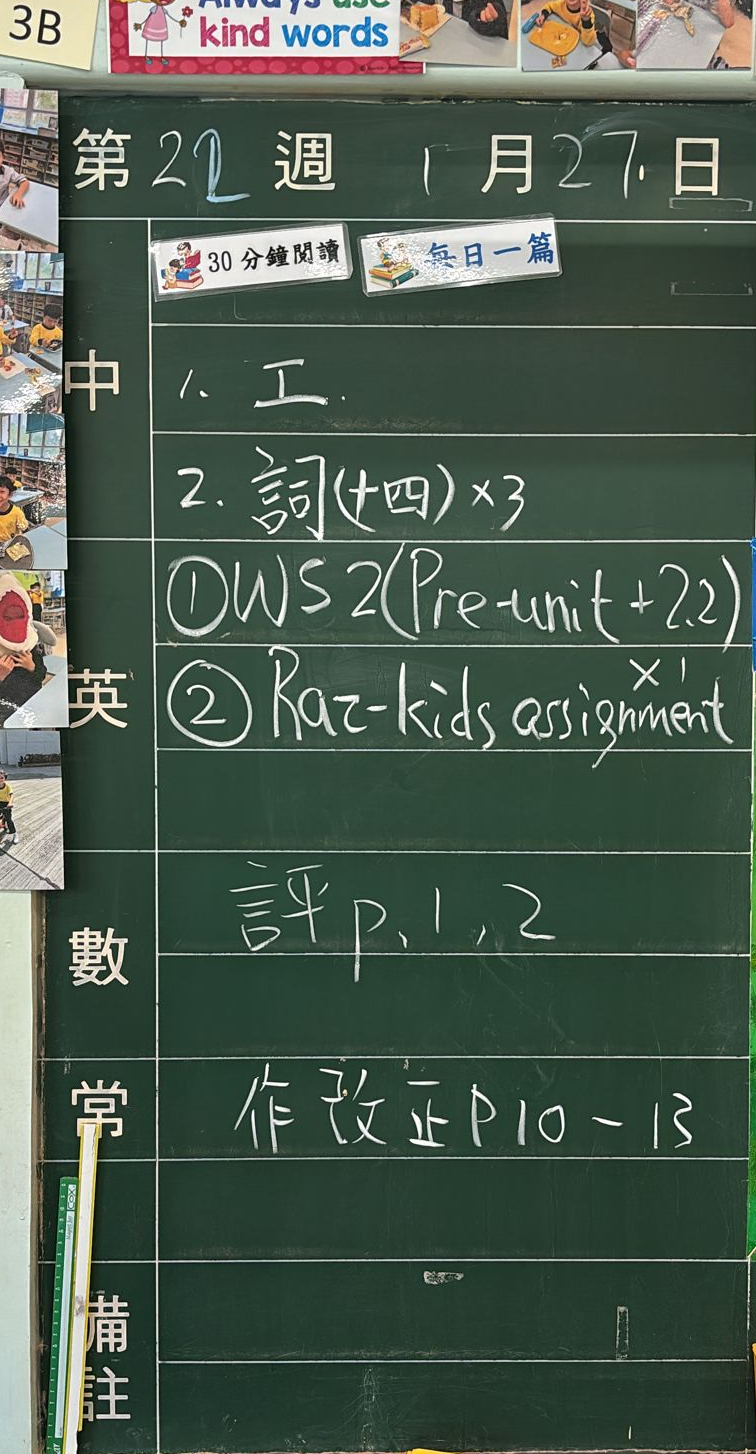 3B
Always use
kind words
第22週 1月27日
30分鐘閱讀 每日一篇
中
1. 工.
2. 詞(十四)×3
英
①WS2(Pre-unit+2.2)
×1
②Raz-kids assignment
數
評p.1,2
常
作改正P10~13
備註